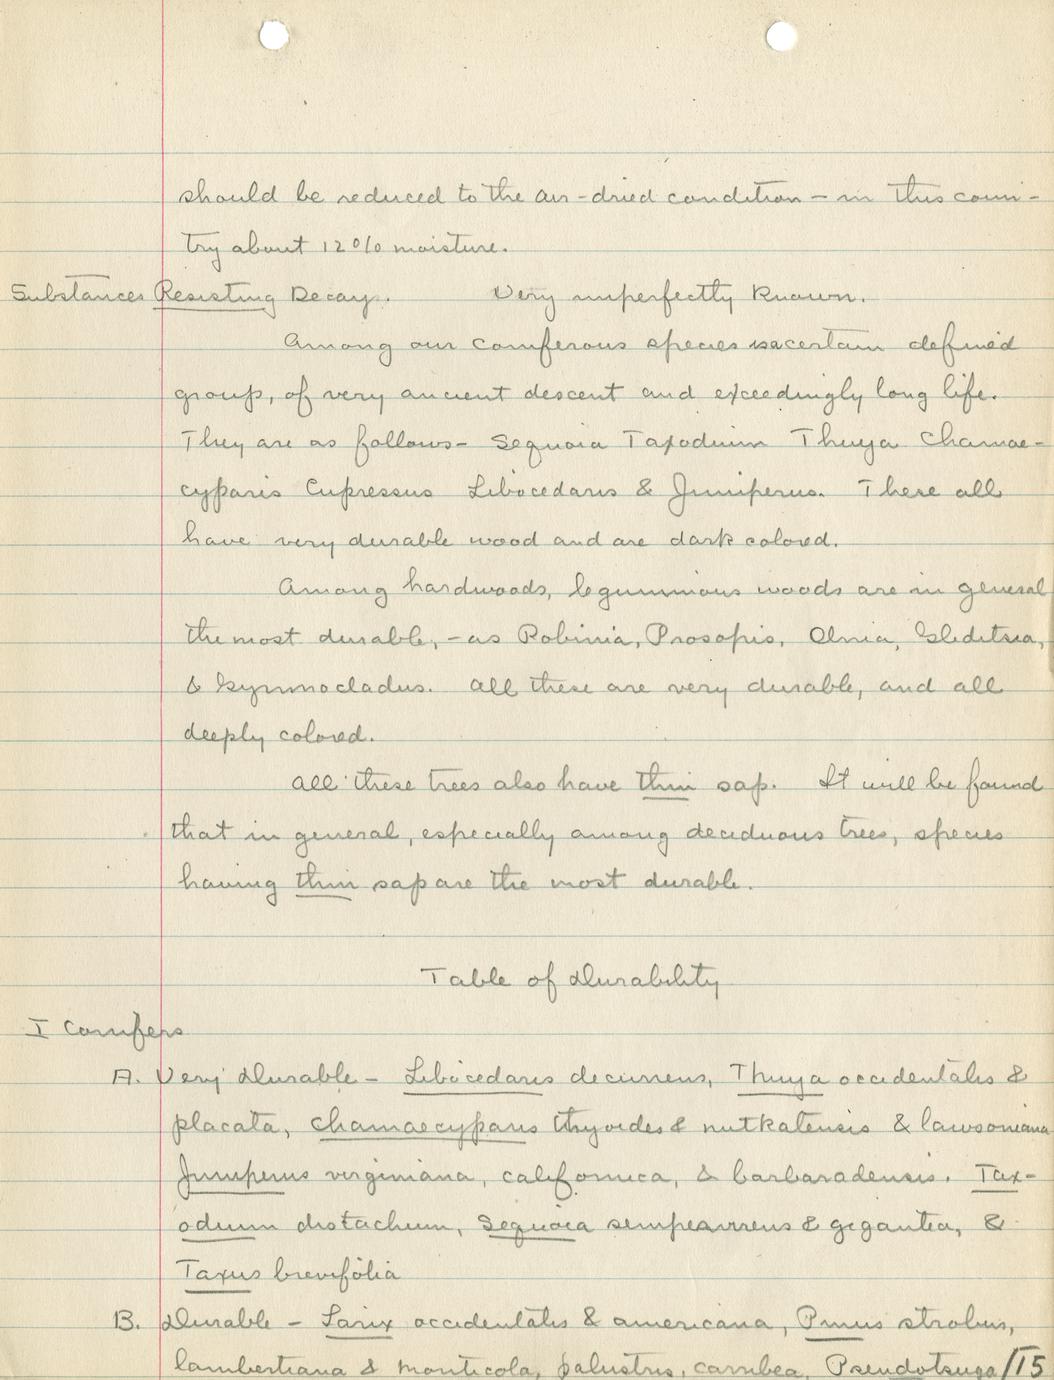 should be reduced to the air-dried condition - in this coun-
try about 12% moisture.
Substances Resisting Decay. Very imperfectly known.
Among our coniferous species is a certain defined
group, of very ancient descent and exceedingly long life.
They are as follows- Sequoia Taxodium Thuya Chamae-
cyparis Cupressus Libocedarus & Juniperus. These all
have very durable wood and are dark colored.
Among hardwoods, leguminous woods are in general
the most durable, - as Robinia, Prosopis, Olnia, Gleditsia,
& Gymnocladus. All these are very durable, and all
deeply colored.
All these trees also have thin sap. It will be found
that in general, especially among deciduous trees, species
having thin sap are the most durable.
Table of Durability
I Conifers
A. Very Durable - Libocedarus decurrens, Thuya occidentalis &
placata, Chamaecyparis thyoides & nutkatensis & lawsoniana
Juniperus virginiana, californica, & barbaradensis. Tax-
odium distachum, Sequoia sempervirens & gigantea, &
Taxus brevifolia
B. Durable - Larix occidentalis & americana, Pinus strobus,
lambertiana & monticola, palustris, caribea, Pseudotsuga /15